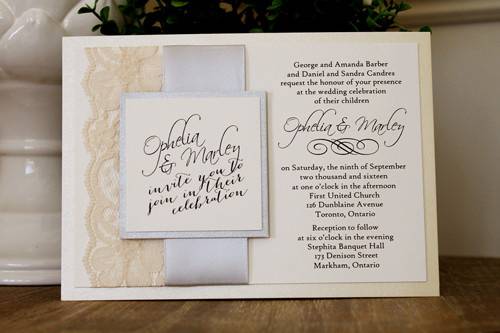 Ophelia
& Marley
invite you to
join in their
celebration
George and Amanda Barber
and Daniel and Sandra Candres
request the honour of your presence
at the wedding celebration
of their children
Ophelia & Marley
on Saturday, the ninth of September
two thousand and sixteen
at one o'clock in the afternoon
First United Church
126 Dunblaine Avenue
Toronto, Ontario
Reception to follow
at six o'clock in the evening
Stephita Banquet Hall
173 Denison Street
Markham, Ontario